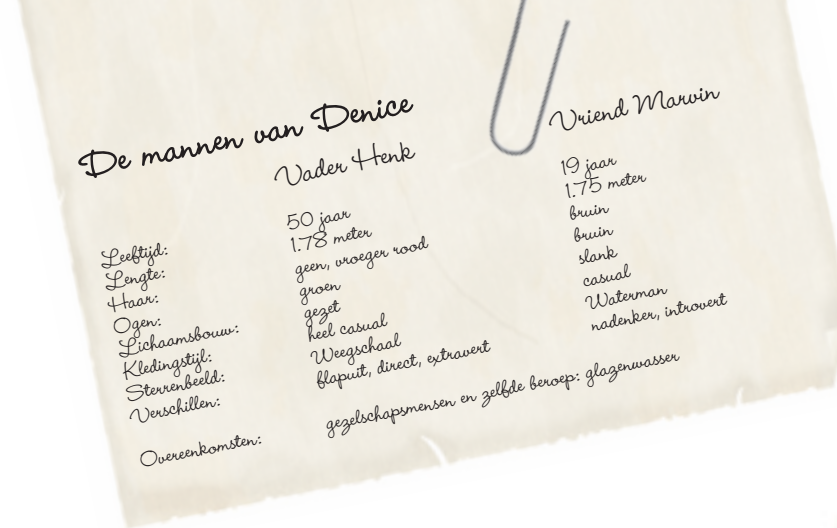 De mannen van Denice
Vader Henk Vriend Marvin
Leeftijd: 50 jaar 19 jaar
Lengte: 1.78 meter 1.75 meter
Haar: geen, vroeger rood bruin
Ogen: groen bruin
Lichaamsbouw: gezet slank
Kledingstijl: heel casual casual
Sterrenbeeld: Weegschaal Waterman
Verschillen: flapuit, direct, extravert nadenker, introvert
Overeenkomsten: gezelschapsmensen en zelfde beroep: glazenwasser